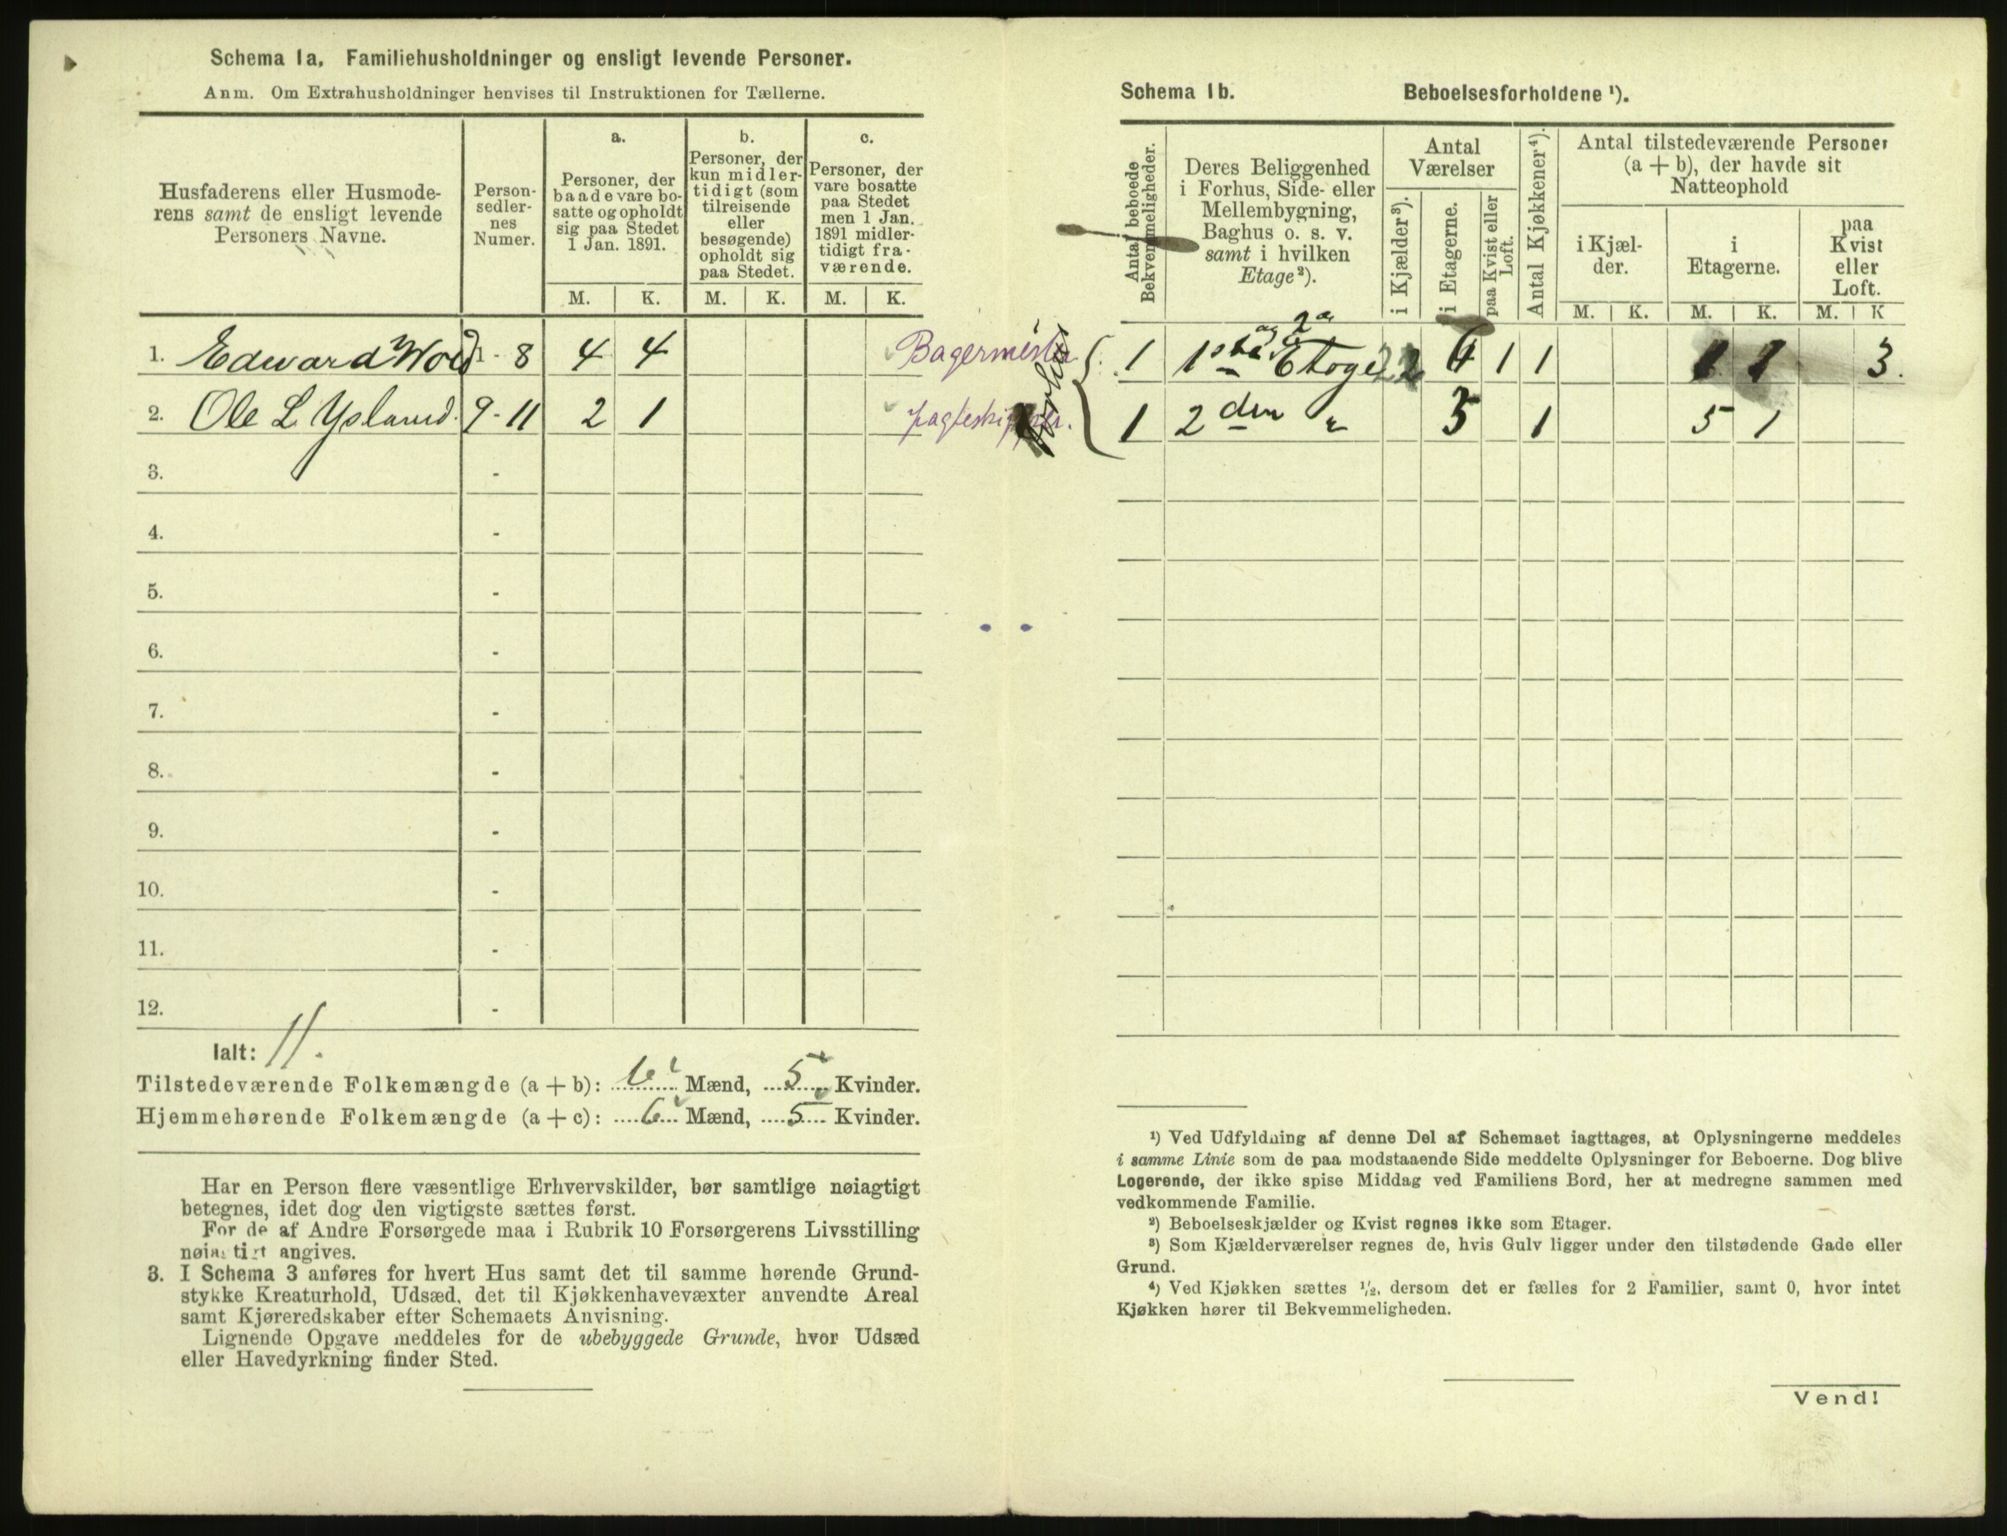 Schema 1a. Familiehusholdninger og ensligt levende Personer.
Anm. Om Extrahusholdninger henvises til Instruktionen for Tællerne.
Husfaderens eller Husmode-
rens samt de ensligt levende
Personers Navne.
Person-
sedler-
nes
Numer.
a.
Personer, der
baade vare bo-
satte og opholdt
sig paa Stedet
1 Jan. 1891.
b.
Personer, der
kun midler-
tidigt (som
tilreisende
eller
besøgende)
opholdt sig
paa Stedet.
c.
Personer, der
vare bosatte
paa Stedet
men 1 Jan.
1891 midler-
tidigt fra-
værende.
M. K. M. K. M. K.
1. Edward Wold 1 - 8 4 4 Bagermester
2. Ole L. Ysland. 9 - 11 2 1
3. -
4. -
5. -
6. -
7. -
8. -
9. -
10. -
11. -
12. -
Ialt: 11.
Tilstedeværende Folkemængde (a + b): 6 Mænd, 5 Kvinder.
Hjemmehørende Folkemængde (a + c): 6 Mænd, 5 Kvinder.
Har en Person flere væsentlige Erhvervskilder, bør samtlige nøiagtigt
betegnes, idet dog den vigtigste sættes først.
For de af Andre Forsørgede maa i Rubrik 10 Forsørgerens Livsstilling
nøiagtigt angives.
3. I Schema 3 anføres for hvert Hus samt det til samme hørende Grund-
stykke Kreaturhold, Udsæd, det til Kjøkkenhavevæxter anvendte Areal
samt Kjøreredskaber efter Schemaets Anvisning.
Lignende Opgave meddeles for de ubebyggede Grunde, hvor Udsæd
eller Havedyrkning finder Sted.
Schema 1b. Beboelsesforholdene ¹).
Antal beboede
Bekvemmeligheder.
Deres Beliggenhed
i Forhus, Side- eller
Mellembygning,
Baghus o. s. v.
samt i hvilken
Etage²).
Antal
Værelser
i Kjælder³).
i Etagerne.
paa Kvist eller
Loft.
Antal Kjøkkener⁴).
Antal tilstedeværende Personer
(a + b), der havde sit
Natteophold
i Kjæl-
der.
i
Etagerne.
paa
Kvist
eller
Loft.
M. K. M. K. M. K
1 1ste og 2den Etage 2 6 1 1 1 1 3.
1 2den " 5 1 5 1
¹) Ved Udfyldning af denne Del af Schemaet iagttages, at Oplysningerne meddeles
i samme Linie som de paa modstaaende Side meddelte Oplysninger for Beboerne. Dog blive
Logerende, der ikke spise Middag ved Familiens Bord, her at medregne sammen med
vedkommende Familie.
²) Beboelseskjælder og Kvist regnes ikke som Etager.
³) Som Kjælderværelser regnes de, hvis Gulv ligger under den tilstødende Gade eller
Grund.
⁴) Ved Kjøkken sættes 1/2, dersom det er fælles for 2 Familier, samt 0, hvor intet
Kjøkken hører til Bekvemmeligheden.
Vend!